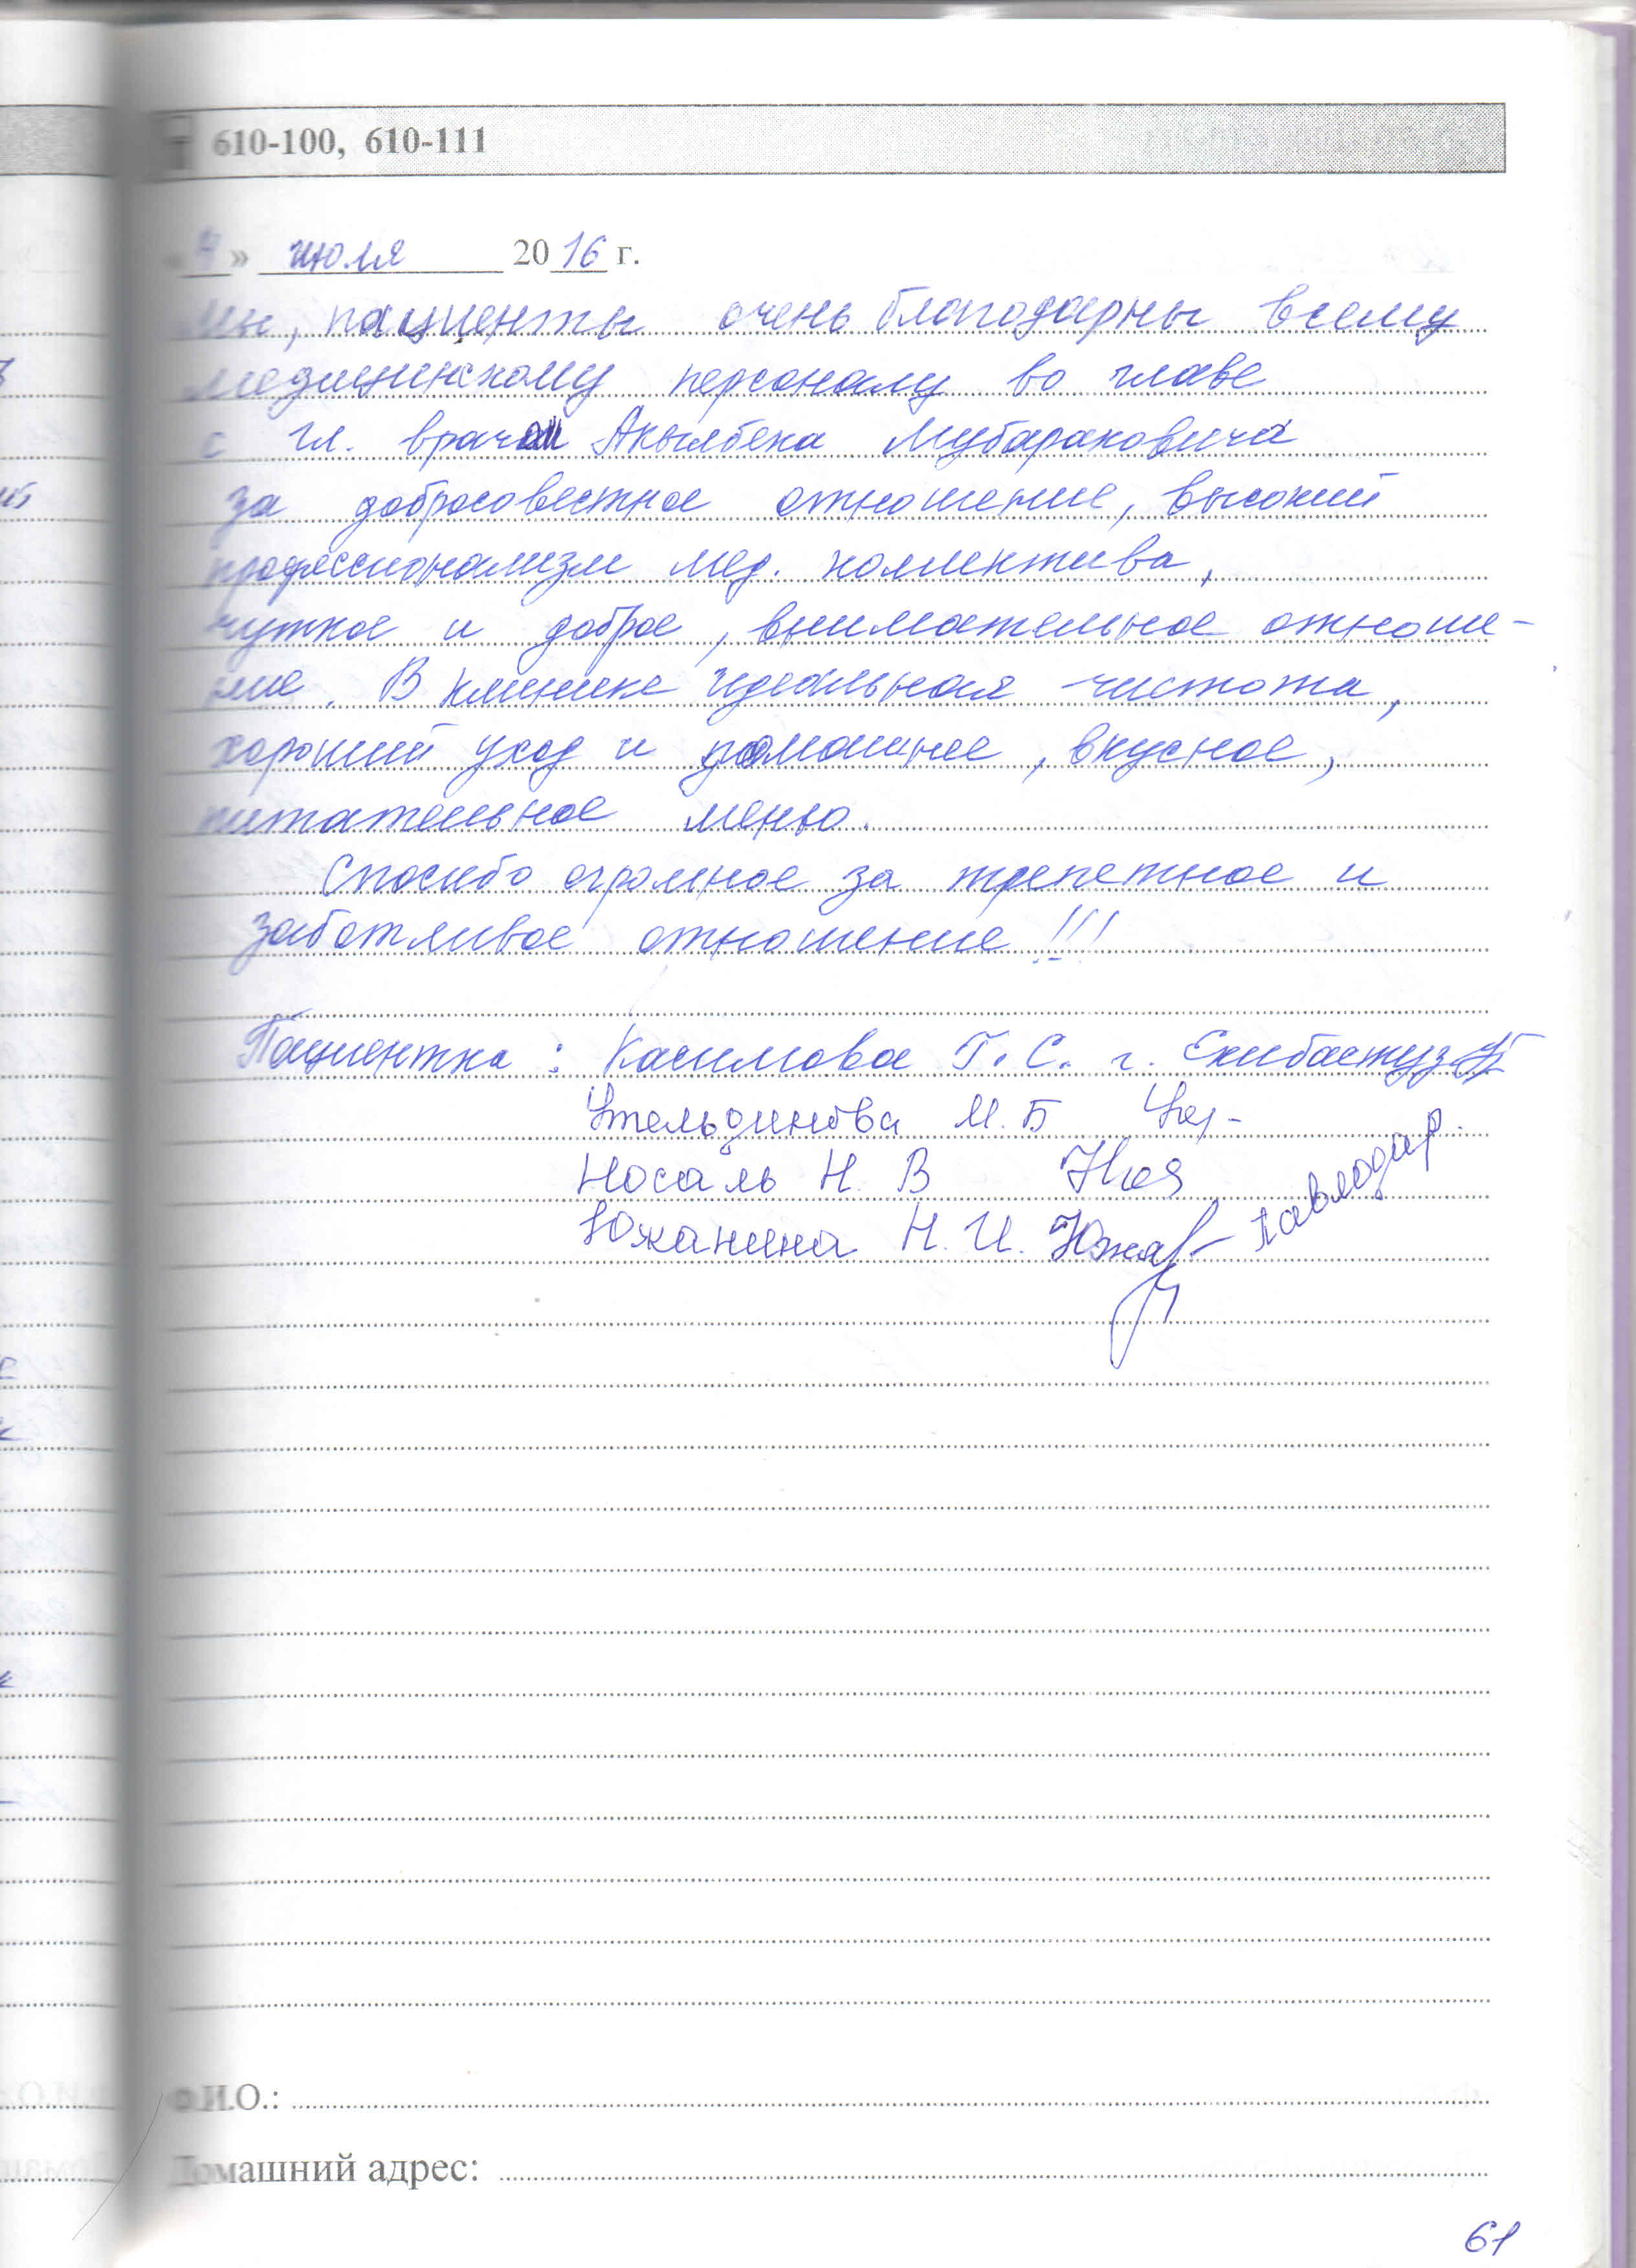 610-100, 610-111
» июля 2016 г.
Мы, пациенты очень благодарны всему
медицинскому персоналу во главе
с гл. врачом Акылбека Мубараковича
за добросовестное отношение, высокий
профессионализм мед. коллектива,
чуткое и доброе, внимательное отноше-
ние. В клинике идеальная чистота,
хороший уход и домашнее, вкусное,
питательное меню.
Спасибо огромное за трепетное и
заботливое отношение!!!
Пациентка: Касимова Г. С. г. Екибастуз
Утельдинова М. Б
Носаль Н. В
Южанина Н. И. Павлодар.
Ф.И.О.:
Домашний адрес:
61